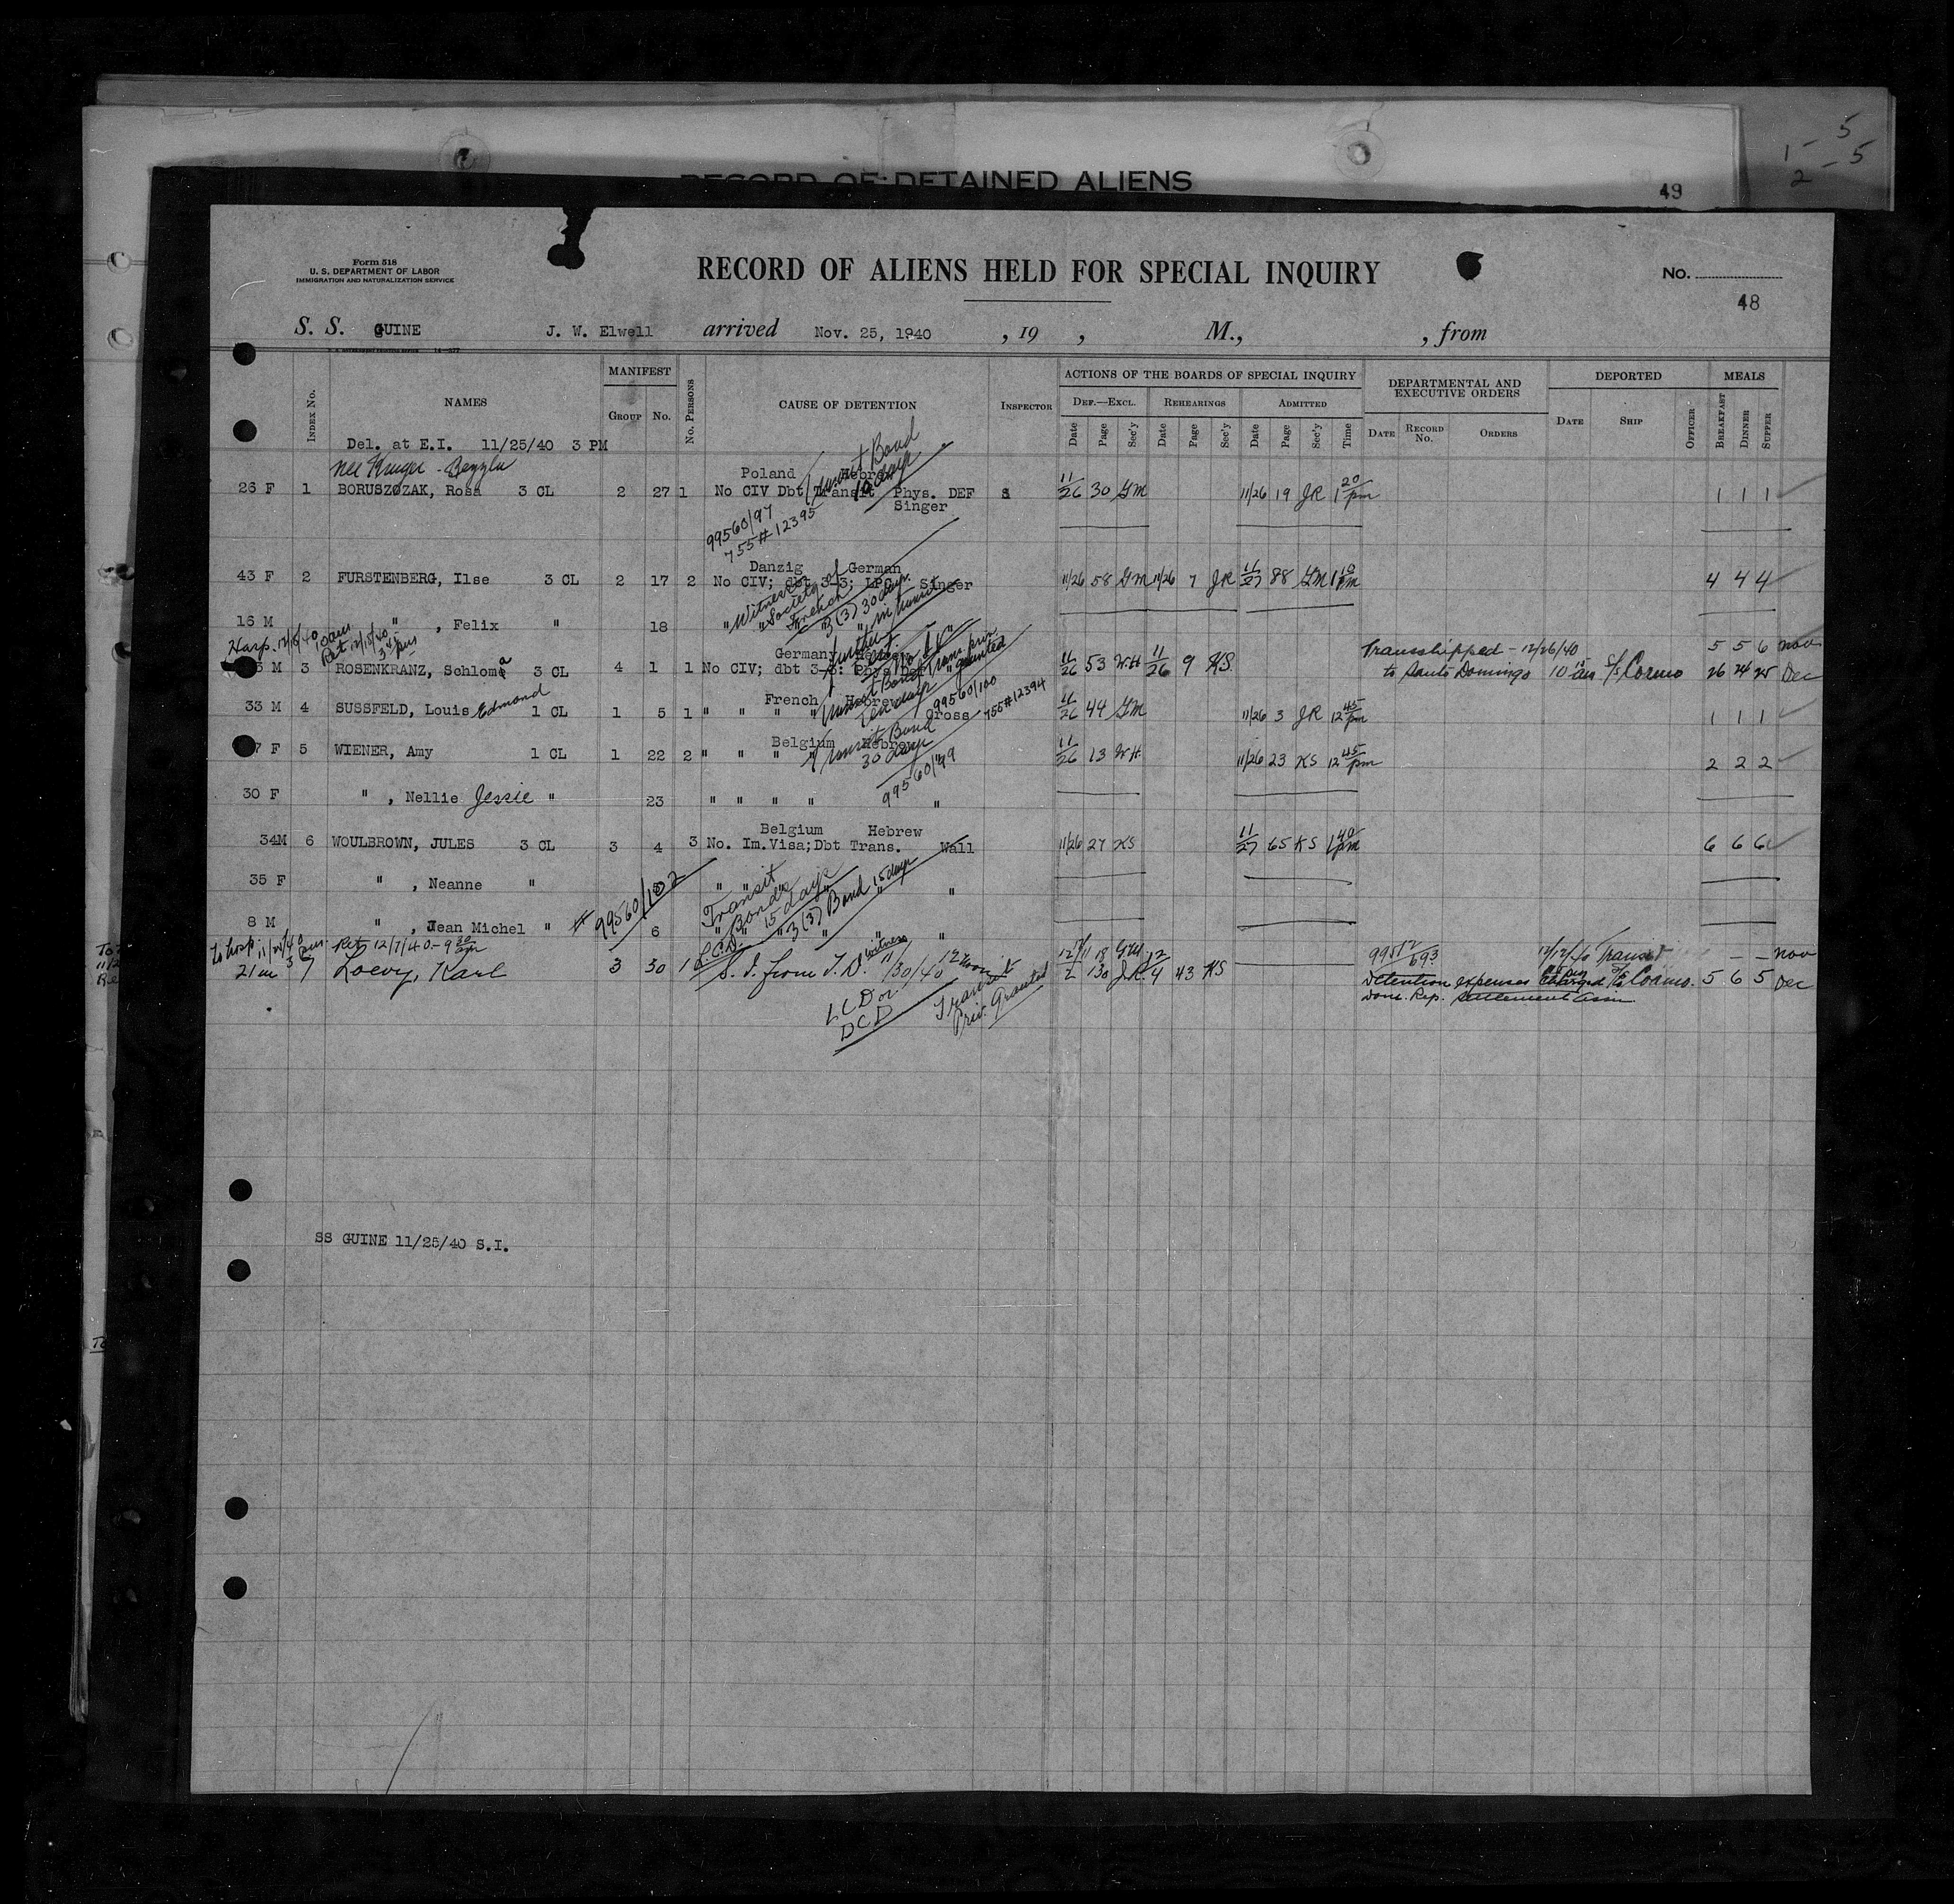 5
1 - 5
2 -
RECORD OF DETAINED ALIENS
49
Form 518
U. S. DEPARTMENT OF LABOR
IMMIGRATION AND NATURALIZATION SERVICE
RECORD OF ALIENS HELD FOR SPECIAL INQUIRY
No.
48
S. S. GUINE J. W. Elwell arrived Nov. 25, 1940 , 19 , M., , from
Index No. NAMES MANIFEST Group No. No. Persons CAUSE OF DETENTION Inspector
ACTIONS OF THE BOARDS OF SPECIAL INQUIRY
Def.—Excl. Rehearings Admitted
Date Page Sec'y Date Page Sec'y Date Page Sec'y Time
DEPARTMENTAL AND EXECUTIVE ORDERS
Date Record No. Orders
DEPORTED
Date Ship Officer
MEALS
Breakfast Dinner Supper
Del. at E.I. 11/25/40 3 PM
nee Kruger
Transit Bond
10 days
Poland Hebrew
26 F 1 BORUSZOZAK, Rosa 3 CL 2 27 1 No CIV Dbt Transit Phys. DEF 11/26 30 GM 11/26 19 JR 1 20 pm 1 1 1
Singer
99560/97
755# 12395
Danzig German
43 F 2 FURSTENBERG, Ilse 3 CL 2 17 2 No CIV; dbt 3-3; LPC; Singer 11/26 58 GM 11/26 7 JR 11/27 88 GM 1 10 pm 4 4 4
Witness
Society of
French
3(3) 30 days
16 M " , Felix " 18
Hosp. 12/8/40 10 am
Ret 12/15/40
Germany
Transshipped - 12/26/40 5 5 6 Nov
M 3 ROSENKRANZ, Schloma 3 CL 4 1 1 No CIV; dbt 3-3: 11/26 53 WH 11/26 9 KS to Santo Domingo 10 am S/S Coamo 26 24 25 Dec
Trans. priv. granted
French Hebrew
33 M 4 SUSSFELD, Louis Edmond 1 CL 1 5 1 " " " " Gross 11/26 44 GM 11/26 3 JR 12 45 pm 1 1 1
Transit Bond
Ten days
99560/100
755#12394
Belgium Hebrew
7 F 5 WIENER, Amy 1 CL 1 22 2 " " " 11/26 13 WH 11/26 23 KS 12 45 pm 2 2 2
Transit Bond
30 days
99560/99
30 F " , Nellie Jessie " 23 " " " " "
Belgium Hebrew
34M 6 WOULBROWN, JULES 3 CL 3 4 3 No. Im.Visa;Dbt Trans. Wall 11/26 27 KS 11/27 65 KS 1 40 pm 6 6 6
35 F " , Neanne " " " "
# 99560/102
Transit
Bonds
15 days
3(3) Bond 15 days
8 M " , Jean Michel " 6 " " " " " "
To hosp. 11/28/40 Ret 12/7/40 - 9 30
21 m 7 Loevy, Karl 3 30 1 S. I. from T. D. 11/30/40 12 Noon
L.C.D. witness
12/2 130 JR 12/4 43 KS
99512/693 Transit - - Nov
Detention expenses charged to S/S Coamo. 5 6 5 Dec
Dom. Rep. Settlement Assn.
LCD or
DCD
Transit
Priv. Granted
SS GUINE 11/25/40 S.I.